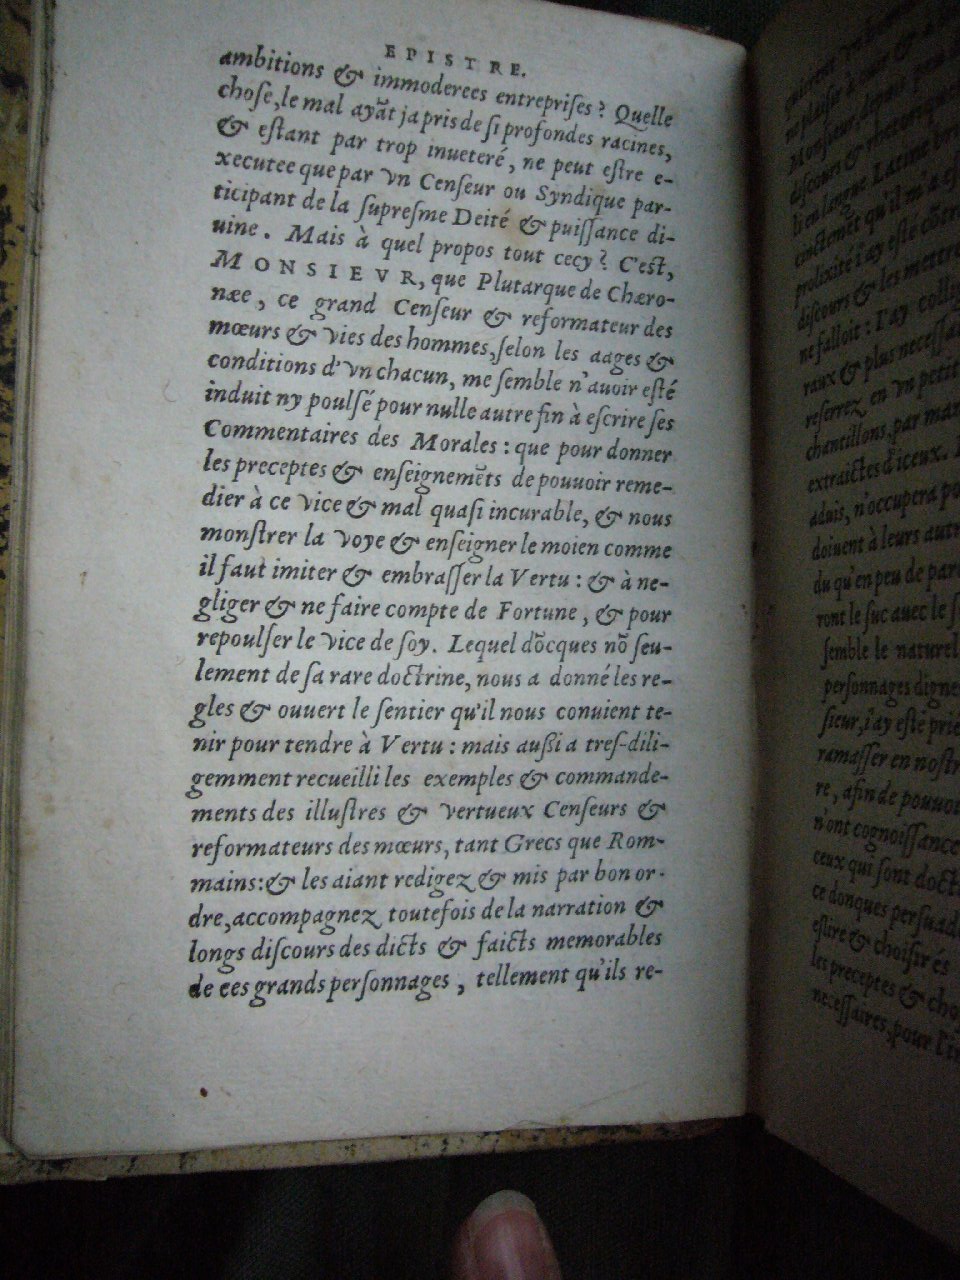 EPISTRE.
ambitions & immoderees entreprises? Quelle
chose, le mal ayāt ja pris de si profondes racines,
& estant par trop inueteré, ne peut estre e-
xecutee que par vn Censeur ou Syndique par-
ticipant de la supresme Deité & puissance di-
uine. Mais à quel propos tout cecy? C'est,
MONSIEVR, que Plutarque de Chæro-
næe, ce grand Censeur & reformateur des
mœurs & vies des hommes, selon les aages &
conditions d'vn chacun, me semble n'auoir esté
induit ny poulsé pour nulle autre fin à escrire ses
Commentaires des Morales: que pour donner
les preceptes & enseignemēts de pouuoir reme-
dier à ce vice & mal quasi incurable, & nous
monstrer la voye & enseigner le moien comme
il faut imiter & embrasser la Vertu: & à ne-
gliger & ne faire compte de Fortune, & pour
repoulser le vice de soy. Lequel dōcques nō seu-
lement de sa rare doctrine, nous a donné les re-
gles & ouuert le sentier qu'il nous conuient te-
nir pour tendre à Vertu: mais aussi a tres-dili-
gemment recueilli les exemples & commande-
ments des illustres & vertueux Censeurs &
reformateurs des mœurs, tant Grecs que Rom-
mains: & les aiant redigez & mis par bon or-
dre, accompagnez toutefois de la narration &
longs discours des dicts & faicts memorables
de ces grands personnages, tellement qu'ils re-
ne plaisir à
Monsieur, depuis
discours & rhetorique
li en langue Latine
prolixité i'ay esté cōtr
discours & les mettre
ne falloit: I'ay
raux & plus necessa
reserrez en vn petit
chantillons, par ma
extraictes d'iceux.
aduis, n'occupera po
doiuent à leurs autr
du qu'en peu de par
ront le suc auec le s
semble le naturel
personnages digne
sieur, i'ay esté prié
ramasser en nostr
re, afin de pouuoi
n'ont cognoissance
ceux qui sont doct
ce donques persuad
eslire & choisir és
les preceptes & cho
necessaires, pour l'in